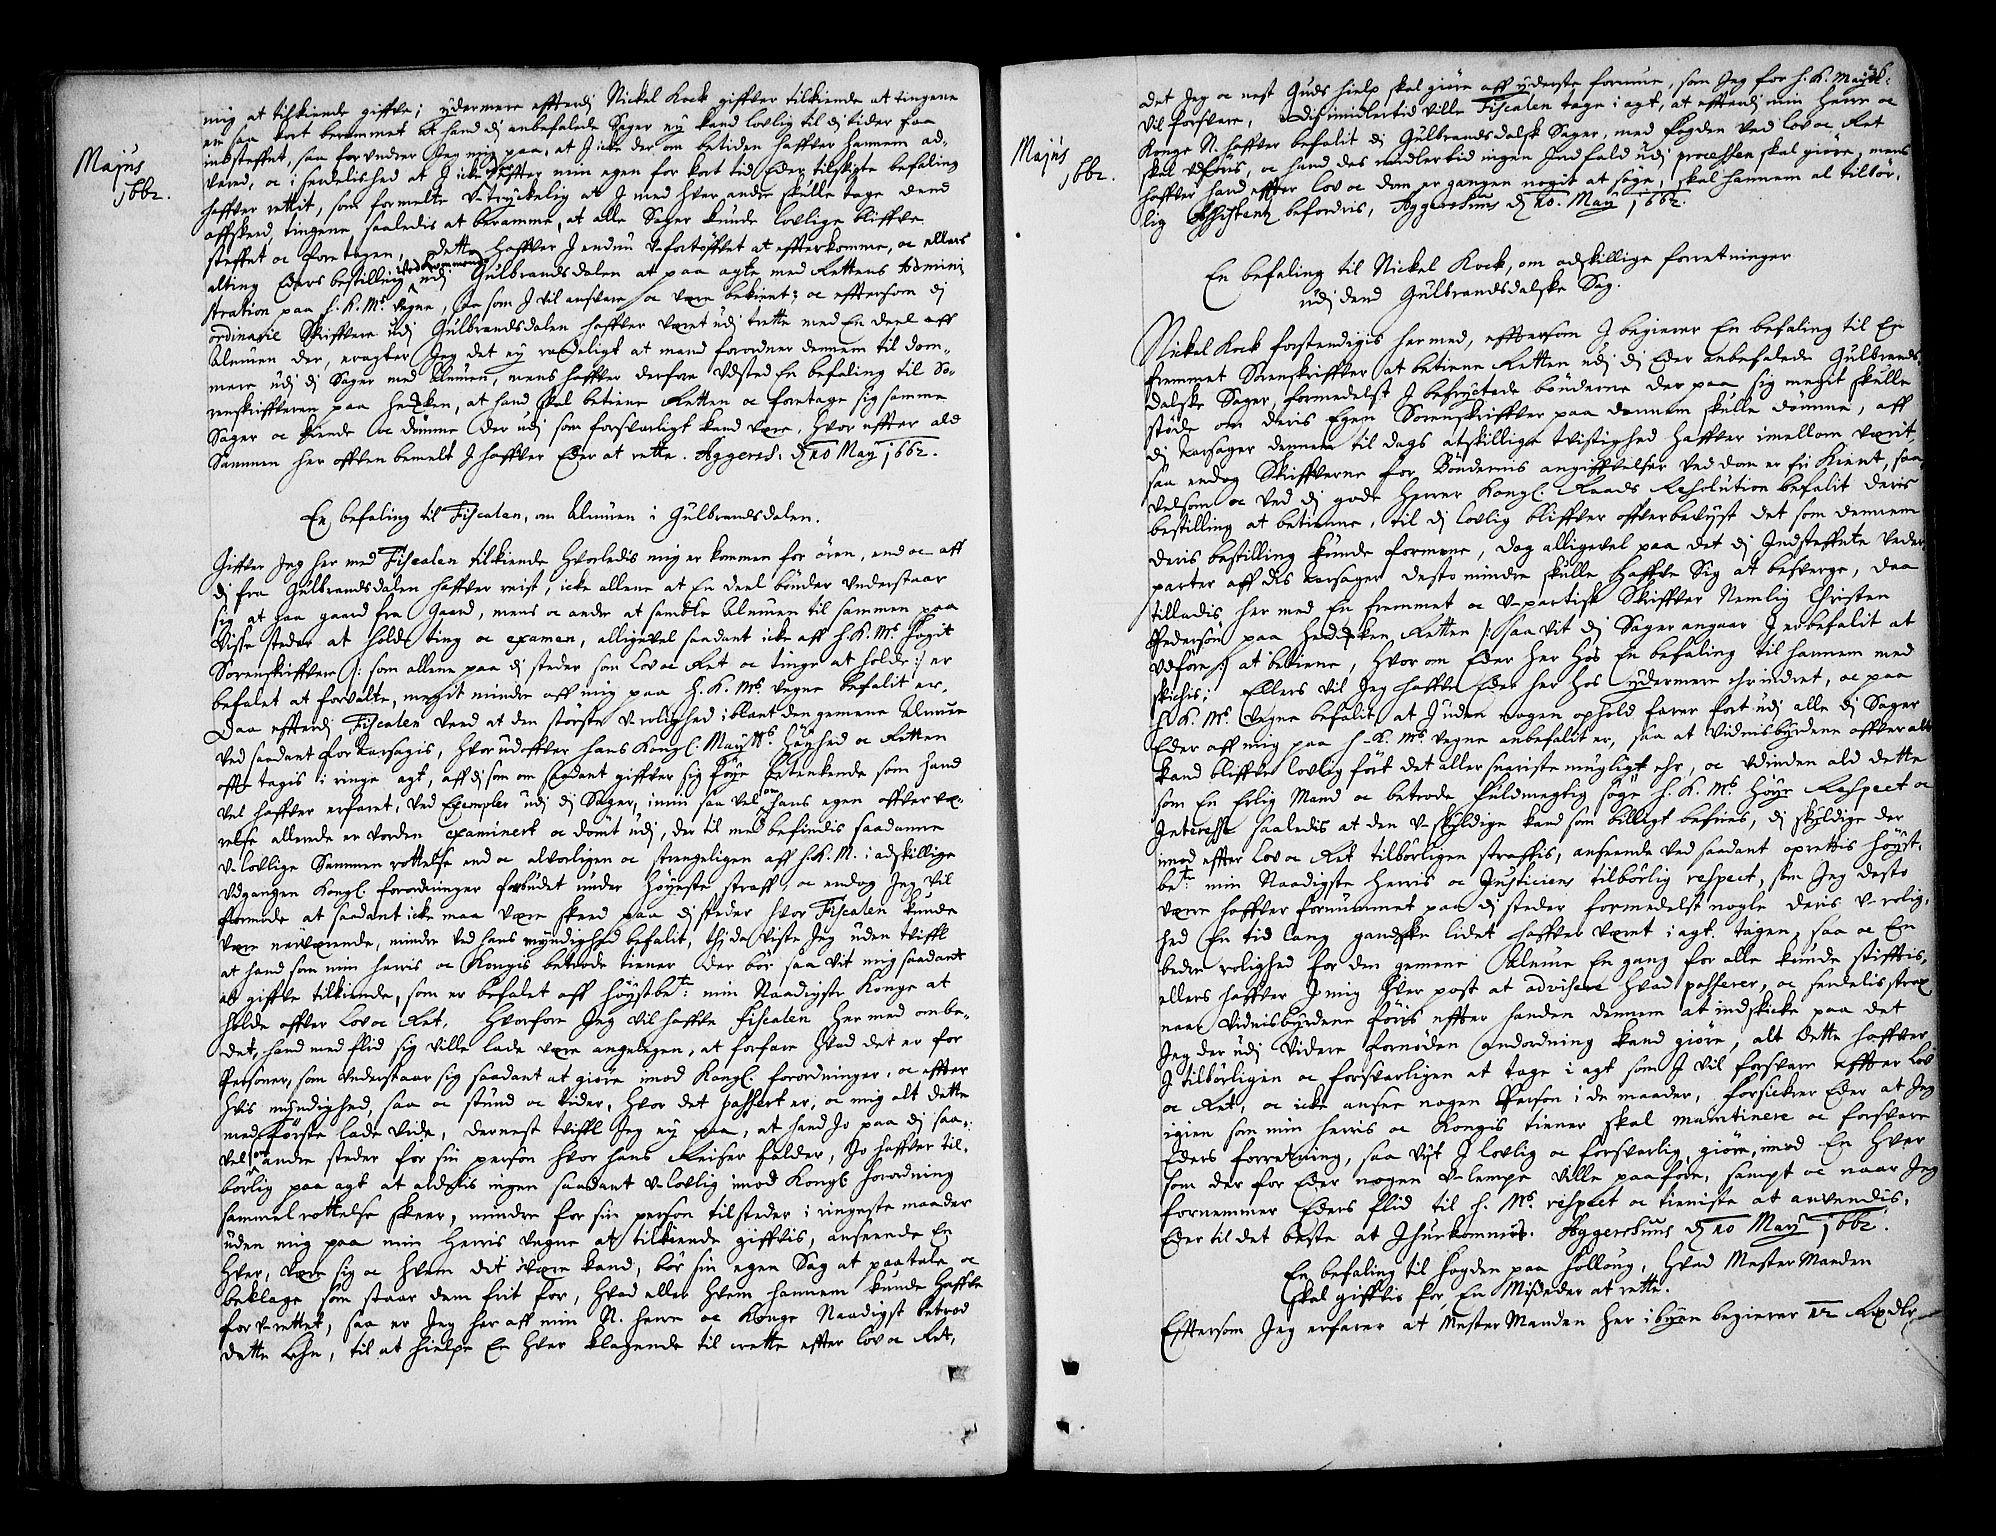 Majus
1662.
mig at tilkiende giffve; ydermere effterdj Nickel Kock giffver tilkiende at tingene
er saa kort berammet at hand dj anbefalede Sager ey kand lovlig til dj tider faa
indsteffnt, saa forundrer Jeg mig paa, at J icke der om betiden haffver hannem ad-
vared, oc i serdelished at J icke effter min egen for kort tid Eder tilskichte befaling
haffver rettit, som formelte udtryckelig at J med hver andre skulle tage dend
affskeed, tingene saaledis at beramme, at alle Sager kunde lovlige bliffve
steffnt oc foretagen, dette haffver J endnu ufortøffvet at effterkomme, oc ellers
alting Eders bestilling vedkommende udj Gulbrandsdalen at paa agte med Rettens Admini-
stration paa H. K. Ms. vegne, som J vil ansvare oc være bekient; oc efftersom dj
ordinarie Skriffvere udj Gulbrandsdalen haffver været udj trette med En deel aff
Almuen der, eragter Jeg det ey raadeligt at mand forordner dennem til dom-
mere udj dj Sager med Almuen, mens haffver derfore udsted En befaling til So-
renskriffveren paa Hedemarcken, at hand skal betiene Retten oc foretage sig samme
Sager oc kiende oc dømme der udj som forsvarligt kand være. Hvor effter ald
Sammen her offven bemelt J haffver Eder at rette. Aggersh: d 10 May 1662.
En befaling til Fiscalen, om Almuen i Gulbrandsdalen.
Giffver Jeg her med Fiscalen tilkiende hvorledis mig er kommen for øren, end oc aff
dj fra Gulbrandsdalen haffver reist, icke allene at En deel bønder understaar
sig at gaa gaard fra Gaard, mens oc andre at samble Almuen til sammen paa
visse steder at holde ting oc examen, alligevel saadant icke aff H. K. Ms. fogit
Sorenskriffvere /: som allene paa dj steder som Lov oc Ret oc tinge at holde :/ er
befalet at forvalte, megit mindre aff mig paa H. K. Ms. vegne befalit er.
Daa effterdj Fiscalen veed at den største urolighed iblant den gemene Almue
ved saadant foraarsagis, hvor udoffver hans Kongl: Maytts. Høyhed oc Retten
offte tagis i ringe agt, aff dj som om saadant giffver sig føye betenkende som hand
vel haffver erfaret, ved Exempler udj dj Sager, innen saa vel om hans egen offver væ-
relse allerede er vorden examinert oc dømt udj, der til med befindis saadanne
u-lovlige Sammen rottelse end oc alvorligen oc strengeligen aff H. K. M. i adskillige
udgangen Kongl: forordninger forbudet under høyeste straff, oc endog Jeg vil
formode at saadant icke maa være skeed paa dj steder hvor Fiscalen kunde
være nerværende, mindre ved hans myndighed befalit, thj da viste Jeg uden tviffl
at hand som min herris oc Kongis betrode tiener der bør saa vit mig saadant
at giffve tilkiende, som er befalet aff høystbete: min Naadigste Konge at
holde offver Lov oc Ret. Hvorfore Jeg vil haffve Fiscalen her med ombe-
det, hand med flid sig ville lade være angelegen, at forfare hvad det er for
Personer, som understaar sig saadant at giøre imod Kongl: forordninger, oc effter
hvis myndighed, saa oc stund oc tider, hvor det passert er; oc mig alt dette
med første lade vide, dernest tviffl Jeg ey paa, at hand Jo paa dj saa-
vel som andre steder for sin person hvor hans Reiser falder, Jo haffver til-
børlig paa agt at aldelis ingen saadant u-lovlig imod Kongl: forordning
sammelrottelse skeer, mindre for sin person tilsteder i ringeste maader
uden mig paa min Herris vegne at tilkiende giffvis, anseende En
hver, være sig oc hvem dit være kand, bør sin egen Sag at paatale oc
beklage som staar dem frit for, hvad eller hvem hannem kunde haffve
forurettet, saa er Jeg her aff min N. herre oc Konge Naadigst betrod
dette Lehn, til at hielpe En hver klagende til rette effter Lov oc Ret,
Majus
1662.
det Jeg oc nest Guds hielp skal giøre aff yderste formue, som Jeg for H. K. Maytt:
vil forsvare, idis imidlertid ville Fiscalen tage i agt, at effterdj min Herre oc
Konge N. haffver befalit dj Gulbrandsdalsk Sager, med Fogden ved Lov oc Ret
skal udføris, oc hand des midlertid ingen Indfald udj processen skal giøre, mens
haffver hand effter Lov oc dom er gangen nogit at sige, skal hannem al tilbør-
lig Assistentz befordris, Aggershuus d 10. May 1662.
En befaling til Nickel Kock, om adskillige forretninger
udj dend Gulbrandsdalske Sag.
Nickel Kock forstendigis her med, efftersom J begierer En befaling til En
fremmet Sorenskriffver at betiene Retten udj dj Eder anbefalede Gulbrands-
dalske Sager, formedelst J befrycteder bønderne der paa sig megit skulle
støde om deris Egen Sorenskriffver paa dennem skulle dømme, aff
dj aarsager dennem til dags atskillige tvistighed haffver imellom værit
saa endog Skriffverne for Bøndernis angiffvelser ved dom er frj kient, saa
velsom oc ved dj gode Herrer Kongl: Raads Resolution befalit deris
bestilling at betienne, til dj lovlig bliffver offverbevyst det som dennem
deris bestilling kunde formene, dog alligevel paa det dj Indsteffnte veder-
parter aff dis aarsager desto mindre skulle haffve Sig at besverge, daa
tilladis her med En fremmet oc u-partisk Skriffver Nemlig Christen
Pedersøn paa Hedemarcken Retten /: saa vit dj Sager angaar J er befalit at
udføre :/ at betiene, hvor om Eder her hos En befaling til hannem med
skickis; Ellers vil Jeg haffve Eder her hos ydermere erindret, oc paa
H. K. Ms. vegne befalit at J uden nogen ophold farer fort udj alle dj Sager
Eder aff mig paa H. K. Ms. vegne anbefalit er, saa at vidnisbyrdene offver alt
kand bliffve lovlig ført det aller snariste mugligt ehr, oc udinden ald dette
som En Erlig Mand oc betrode fuldmegtig søge H. K. Ms. Høye Respect oc
Interesse saaledis at den u-skyldige kand som billigt befries, dj skyldige der
imod effter Lov oc Ret tilbørligen straffis, anseende ved saadant oprettis høyst-
bete: min Naadigste Herris oc Justiciens tilbørlig respect, som Jeg desto
værre haffver fornummet paa dj steder formedelst nogle deris u-rolig-
hed En tid lang gandske lidet haffver været i agt tagen, saa oc En
bedre rolighed for den gemene Almue En gang for alle kunde stifftis,
ellers haffver J mig hver post at advisere hvad passerer, oc serdelis strax
naar vidnisbyrdene føris effter handen dennem at indskicke paa det
Jeg der udj videre fornøden andordning kand giøre, alt dette haffver
J tilbørligen oc forsvarligen at tage i agt som J vil forsvare effter Lov
oc Ret, oc icke ansee nogen Person i de maader, forsickrer Eder at Jeg
igien som min herris oc Kongis tiener skal maintinere oc forsvare
Eders forretning, saa vit J lovlig oc forsvarlig giøre, imod En hver
som der for Eder nogen u-lempe ville paaføre, sampt oc naar Jeg
fornemmer Eders flid til H. Ms. respect oc tieniste at anvendis,
Eder til det beste at Jhukommis. Aggershuus d 10 May 1662.
En befaling til fogden paa Folloug, hvad Mester Manden
skal giffvis for En Misdeder at rette.
Efftersom Jeg erfarer at Mester Manden her i byen begierer 12 Rixdlr